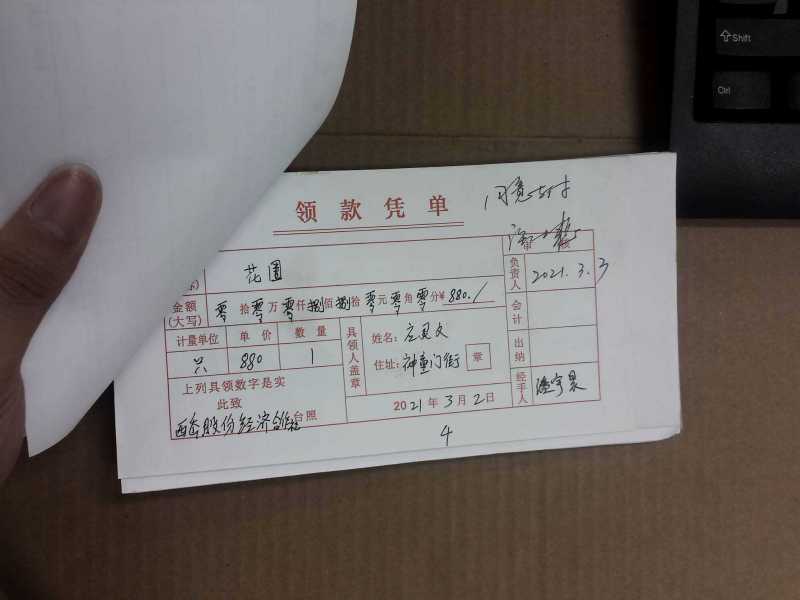 Shift
Ctrl
领款凭单
同意支付
花圈
金额(大写) 零拾零万零仟捌佰捌拾零元零角零分 ¥880./
计量单位 单价 数量
只 880 1
上列具领数字是实
此致
股份经济合作社台照
具领人盖章
姓名:
住址:神童门街 章
2021年3月2日
负责人 2021.3.3
会计
出纳
经手人
4